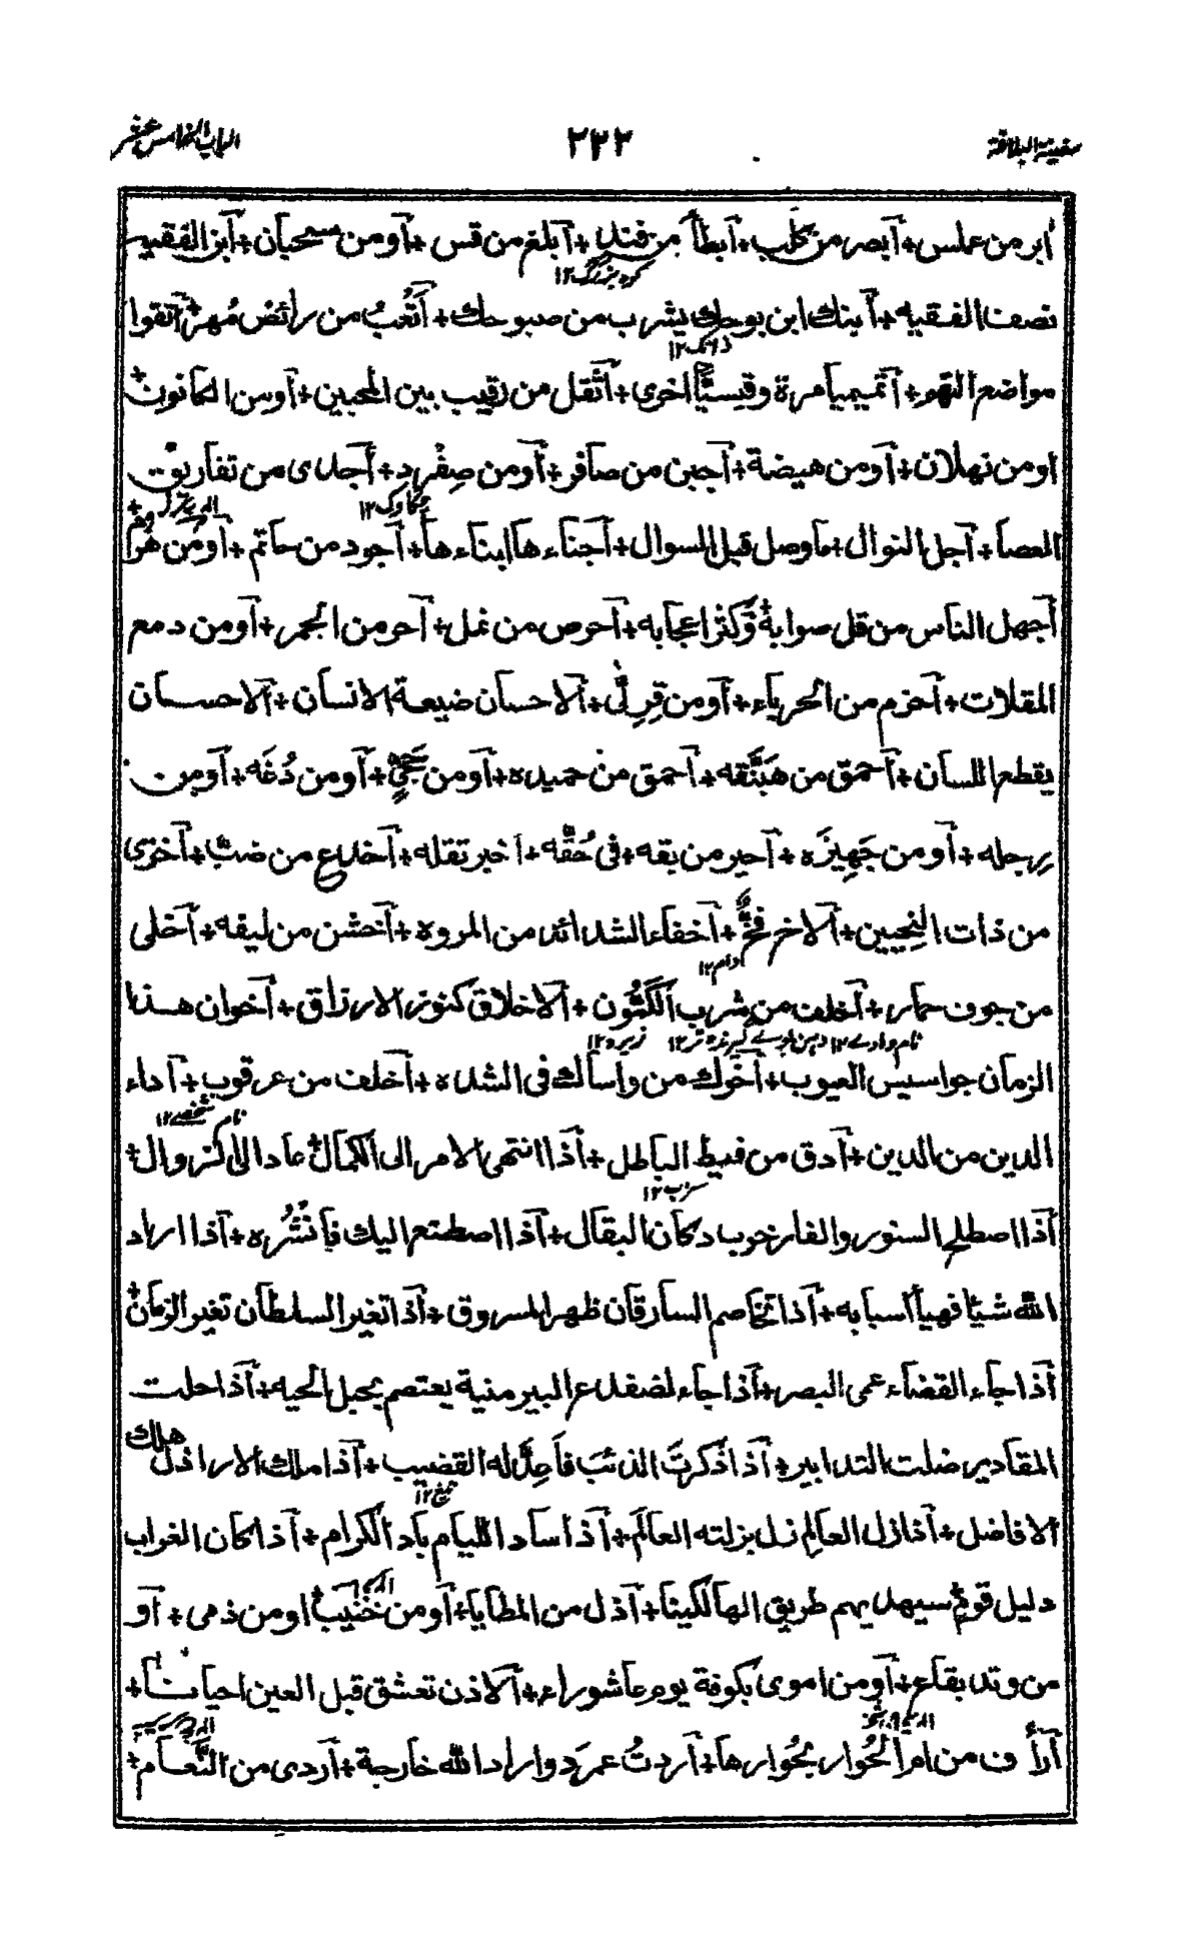 سفينة البلاغة ٢٢٢ الباب الخامس عشر
أبر من عملس + أبصر من كلب + أبطأ من فند + أبلغ من قس + أو من سحبان + ابن الفقيه
نصف الفقيه + ابنك ابن بوحك يشرب من صبوحك + أتعب من رائض مهر + اتقوا
مواضع التهم + أتميميا مرة وقيسيا اخرى + أثقل من رقيب بين المحبين + أو من الكانون +
او من نهلان + أو من هيضة + أجبن من صافر + أو من صفرد + أجدى من تفاريق
العصا + أجل النوال + ما وصل قبل السوال + أجناءها ابناءها + أجود من حاتم + أو من هرم
أجهل الناس من قل صوابه وكثر اعجابه + أحرص من نمل + أحر من الجمر + أو من دمع
المقلات + أحزم من الحرباء + أو من قرلى + ألاحسان ضيعة الانسان + ألاحسان
يقطع اللسان + أحمق من هبنقه + أحمق من حميده + أو من جحى + أو من دغه + أو من
رجله + أو من جهيزه + أحير من بقه + فى حقه + اخبر تقله + أخدع من ضب + أخزى
من ذات النحيين + ألاخر فخ + أخفاء الشدائد من المروه + أخشن من ليفه + أخلى
من جوف حمار + أخلف من شرب الكمون + ألاخلاق كنوز الارزاق + أخوان هذا
الزمان جواسيس العيوب + أخوك من واساك فى الشده + أخلف من عرقوب + أداء
الدين من الدين + أدق من خيط الباطل + أذا انتهى الامر الى الكمال عاد الى الزوال +
أذا اصطلح السنور والفار خرب دكان البقال + أذا اصطنع اليك فانشره + أذا اراد
الله شيئا فهيأ أسبابه + أذا تخاصم السارقان ظهر المسروق + أذا تغير السلطان تغير الزمان +
أذا جاء القضاء عمى البصر + أذا جاء لضفدع البير منية يعتصم بحبل الحيه + أذا حلت
المقادير ضلت التدابير + أذا ذكرت الذئب فأعد له القضيب + أذا ملك الاراذل هلك
الافاضل + أذا زل العالم زل بزلته العالم + أذا ساد اللئام باد الكرام + أذا كان الغراب
دليل قوم سيهديهم طريق الهالكينا + أذل من المطايا + أو من خنيب او من ذمى + أو
من وتد بقاع + أو من اموى بكوفة يوم عاشوراء + ألاذن تعشق قبل العين احيانا +
أرأف من ام الحوار بحوارها + أردت عمرد واراد الله خارجة + أردى من النعام +